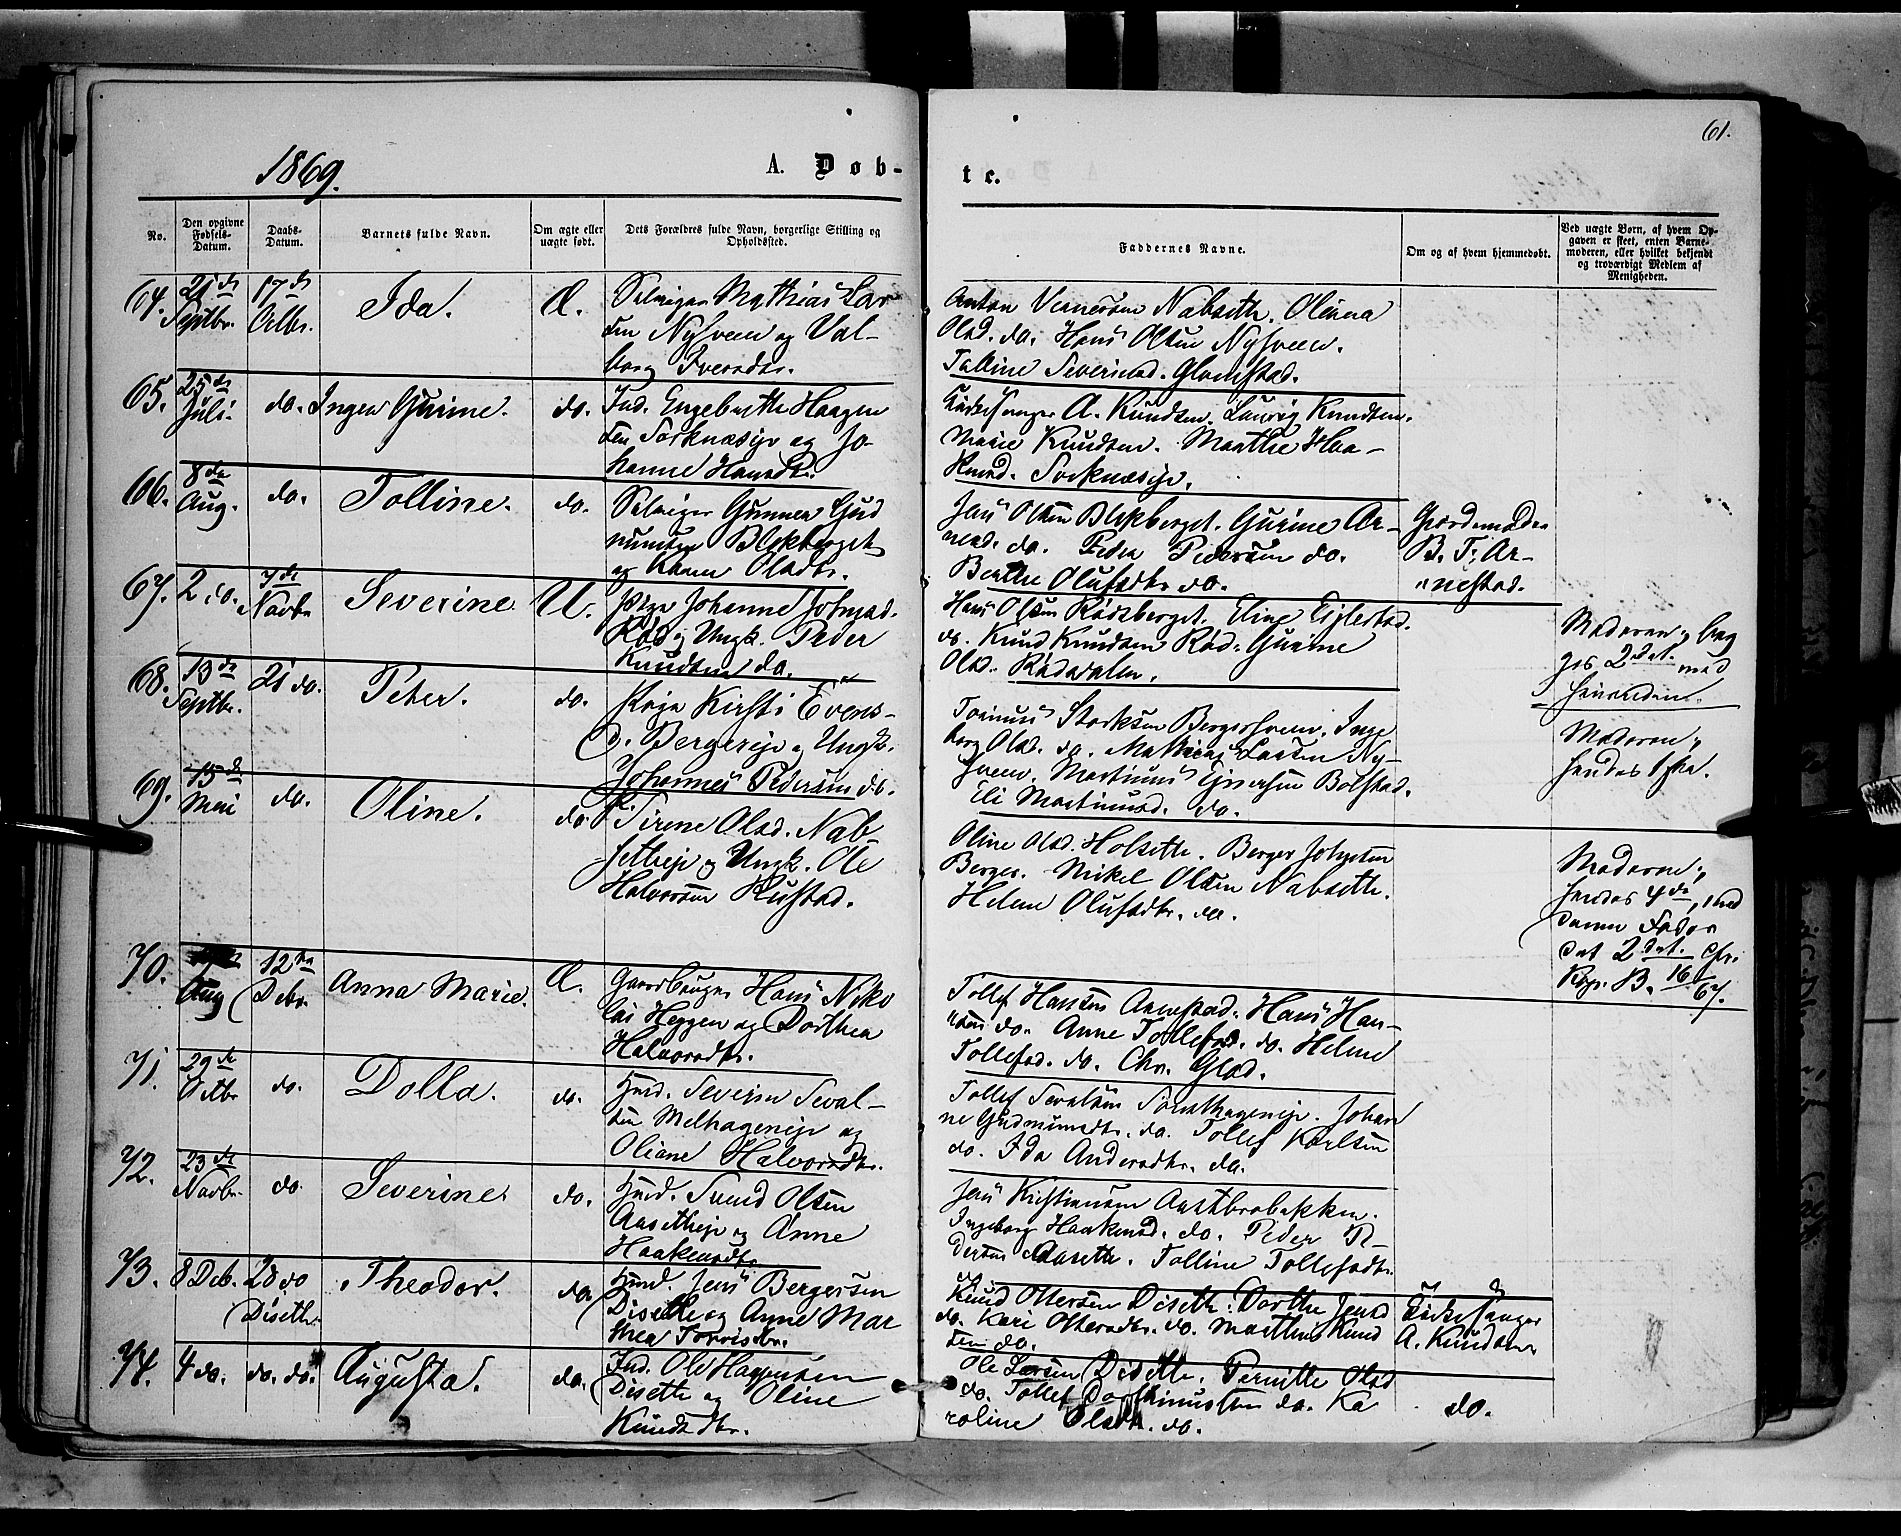 61.
1869.
A. Døb-
te.
No.
Den opgivne Fødsels-Datum.
Daabs-Datum.
Barnets fulde Navn.
Om ægte eller uægte født.
Dets Forældres fulde Navn, borgerlige Stilling og Opholdssted.
Faddernes Navne.
Om og af hvem hjemmedøbt.
Ved uægte Børn, af hvem Opgaven er skeet, enten Barnemoderen, eller hvilket bekjendt og troværdigt Medlem af Menigheden.
64. 21de Septbr. 17de Octbr. Ida. Æ.
Selveier Mathias Lar
sen Nysveen og Val-
borg Iversdtr.
Anton Oliana
Olsd. do. Hans Olsen Nysveen.
Tolline Severinsd. Glomstad.
65. 25de Juli. do. Inger Gurine. do.
Ind. Engebrette Haagen
sen Torknæseje og Jo-
hanne Hansdtr.
Kirkesanger A. Knudsen. Lauvig Knudsen.
Marie Knudsen. Marthe Haa-
kensd. Torknæseje.
66. 8de Aug. do. Tolline. do.
Selveier Gunner Gud
munsen Blekberget
og Karen Olsdtr.
Jens Olsen Blekberget. Gurine Ar-
nesd. do. Peder Pedersen do.
Benthe Olufsdtr do.
Gjordemoder
B. T. Ar-
nestad.
67. 2 do. 7de Novbr Severine. U.
Pige Johanne Johnsd.
Rød og Ungk. Peder
Knudsen do.
Hans Olsen Rødsberget. Eline
do. Knud Knudsen Rød. Gurine
Olsd. Rødsvolen.
Moderen; beg
ges 2det. med
hinanden.
68. 13de Septbr. 21 do. Peter. do.
Pige Kirsti Evens-
d. Bergeseje og Ungk.
Johannes Pedersen do.
Torinus Storksen Bergersveen. Inge
borg Olsd. do. Mathias Larsen Ny-
sveen. Martinus Iversen Bolstad.
Eli Martinusd. do.
Moderen;
hendes 1ste.
69. 15de Mai do. Oline. do.
P. Sirene Olsd. Nab
setheje og Ungk. Ole
Halvorsen Rustad.
Oline Olsd. Holsethe. Berger Johnsen
Berger. Mikel Olsen Nabsethe.
Helene Olufsdtr. do.
Moderen;
hendes 4de, med
denne Fader
det 2det. cfr.
Rgs. B. 16/67.
70. Aug 12te Debr. Anna Marie. Æ.
Gaardbruger Hans Niko
lai Heggen og Dorthea
Halvorsdtr.
Tollef Hansen Arnestad. Hans Han-
sen do. Anne Tollefsd. do. Helene
Tollefsd. do. Chr. Glad.
71. 29de Octbr do. Dolla. do.
Husd. Severin Seval-
sen Melhageneje og
Oliane Halvorsdtr.
Tollef Sevalsen Tomthageneje. Johan
ne Gudmunsdtr. do. Tollef Karlsen
do. Ida Andersdtr. do.
72. 23de Novbr do. Severine. do.
Husd. Svend Olsen
Aasetheje og Anne
Haakensdtr
Jens Kristiansen Aastbrobakken.
Ingeborg Haakensd. do. Peder P-
dersen Aasethe. Tolline Tollefsdtr.
do.
73. 8 Deb. 28 do Disethe. Theodor. do.
Husd. Jens Bergersen
Disethe og Anne Mar
thea Torrisdtr.
Knud Ottersen Disethe. Dorthe Jensd
do. Kari Ottersdtr. do. Marthin Knud
sen do.
Kirkesanger
A. Knudsen.
74. 4 do. do. do. Augusta. do.
Ind. Ole Haagensen
Disethe og Oline
Knudsdtr.
Ole Larsen Disethe. Pernille Olsd
do. Tollef Dorthinussen do. Ka
roline Olsdtr. do.
do.